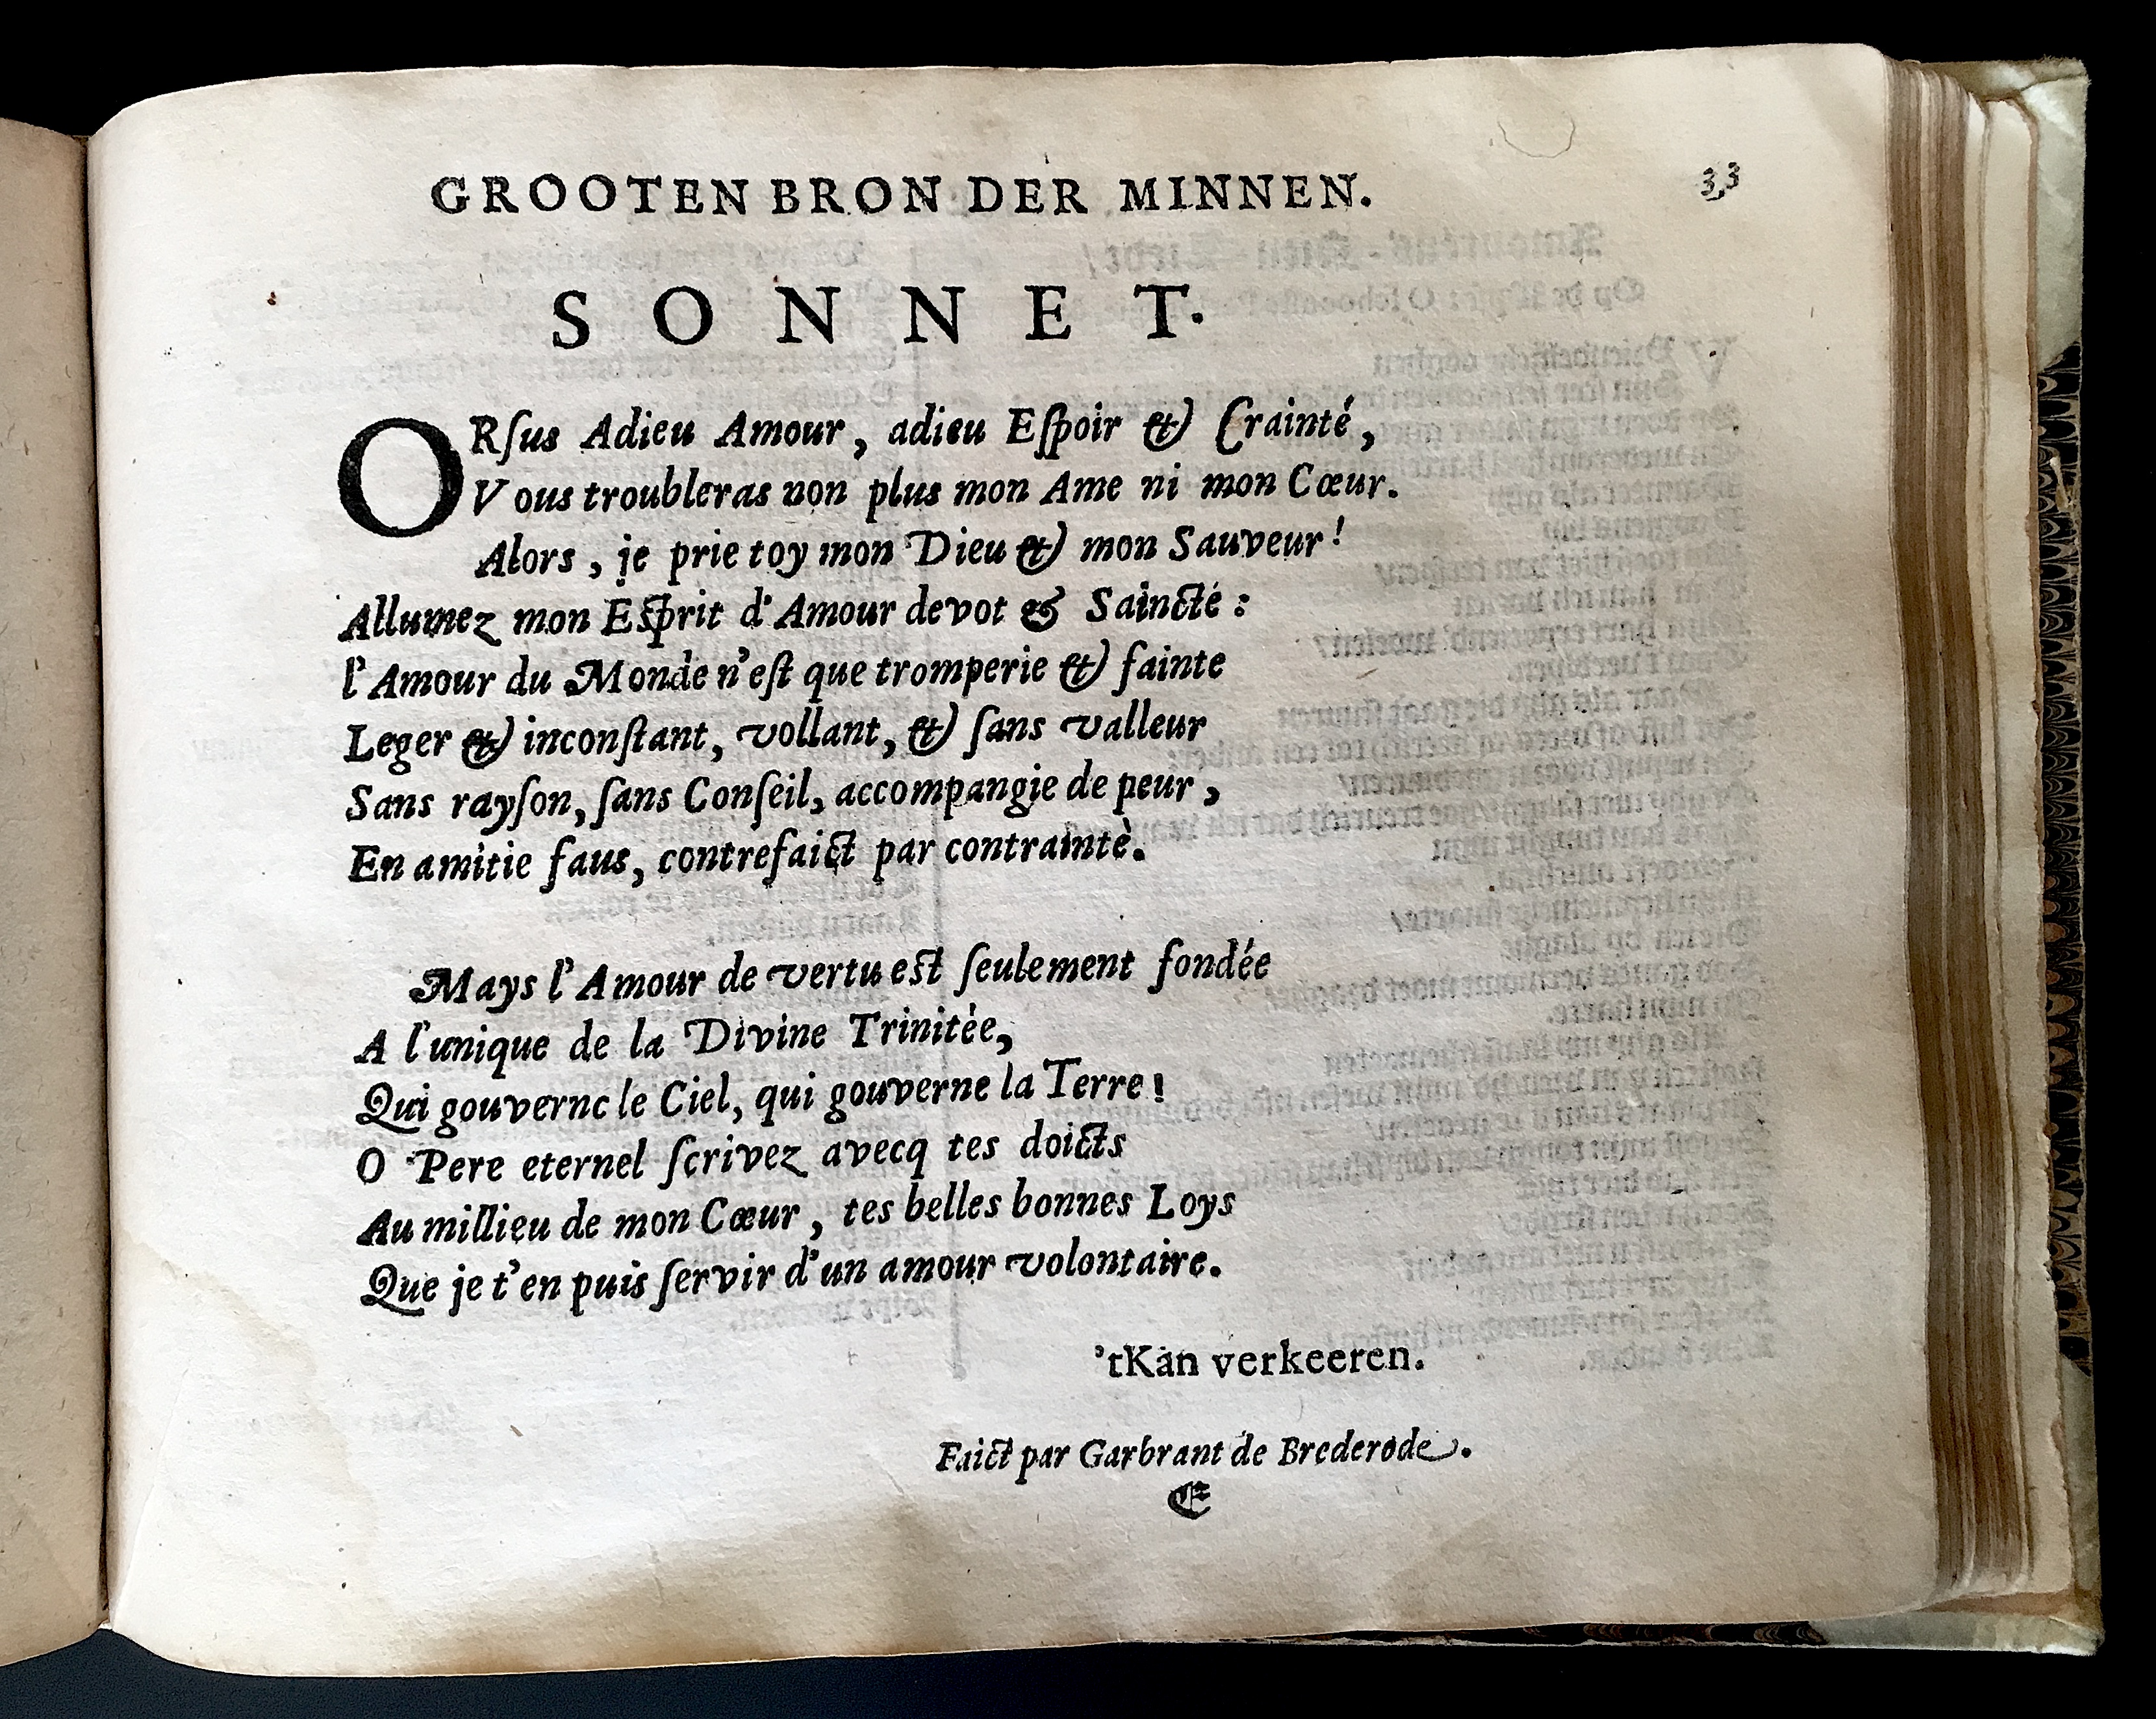 GROOTEN BRON DER MINNEN. 33
SONNET.
ORſus Adieu Amour, adieu Eſpoir & Crainté,
Vous troubleras non plus mon Ame ni mon Cœur.
Alors, je prie toy mon Dieu & mon Sauveur!
Allumez mon Esprit d'Amour devot & Saincté:
l'Amour du Monde n'eſt que tromperie & fainte
Leger & inconſtant, vollant, & ſans valleur
Sans rayſon, ſans Conſeil, accompangie de peur,
En amitie faus, contrefaict par contraintè.
Mays l'Amour de vertu est ſeulement fondée
A l'unique de la Divine Trinitée,
Qui gouverne le Ciel, qui gouverne la Terre!
O Pere eternel ſcrivez avecq tes doicts
Au millieu de mon Cœur, tes belles bonnes Loys
Que je t'en puis ſervir d'un amour volontaire.
'tKan verkeeren.
Faict par Garbrant de Brederode.
E